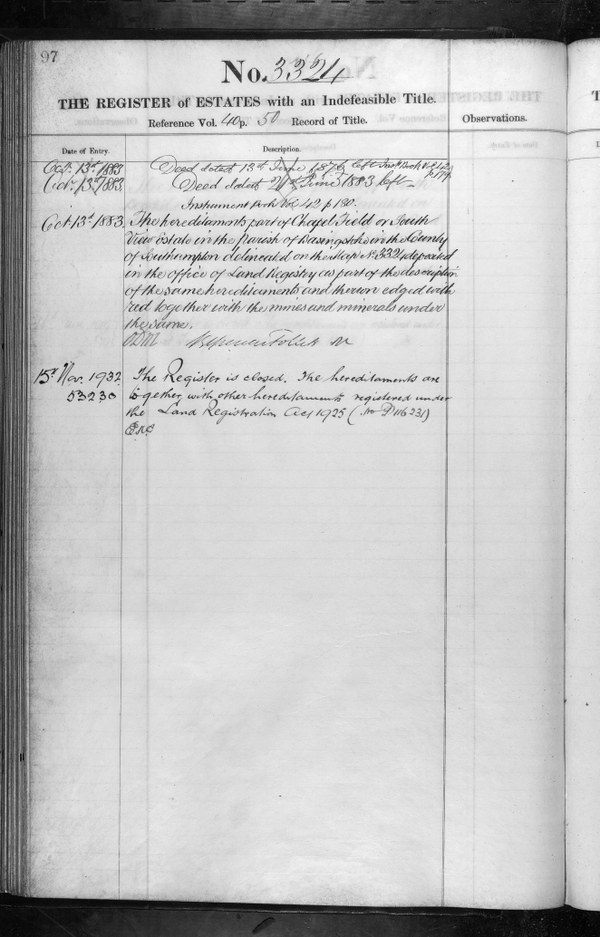 97
No. 3324
THE REGISTER of ESTATES with an Indefeasible Title.
Reference Vol. 40 p. 50 Record of Title.
Observations.
Date of Entry.
Description.
Oct. 13th 1883 Deed dated 13th June 1876 left Inst Book Vol 42 p 179
Oct. 13th 1883 Deed dated June 1883 left
Instrument Book Vol 42 p 180.
Oct 13th 1883. The hereditaments part of Chapel Field or South
View Estate in the Parish of Basingstoke in the County
of Southampton delineated on the Map No 3324 deposited
in the office of Land Registry as part of the description
of the same hereditaments and thereon edged with
red together with the mines and minerals under
the same.
15th Nov. 1932 The Register is closed. The hereditaments are
53230 together with other hereditaments registered under
the Land Registration Act 1925 (No P 116231)